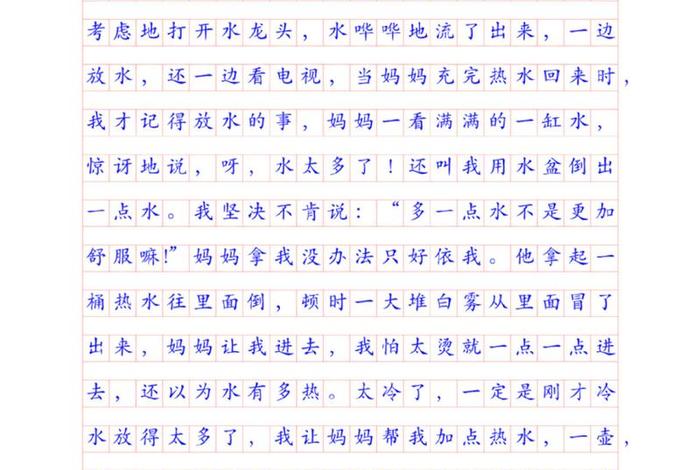 考虑地打开水龙头，水哗哗地流了出来，一边
放水，还一边看电视，当妈妈充完热水回来时，
我才记得放水的事，妈妈一看满满的一缸水，
惊讶地说，呀，水太多了！还叫我用水盆倒出
一点水。我坚决不肯说：“多一点水不是更加
舒服嘛!”妈妈拿我没办法只好依我。他拿起一
桶热水往里面倒，顿时一大堆白雾从里面冒了
出来，妈妈让我进去，我怕太烫就一点一点进
去，还以为水有多热。太冷了，一定是刚才冷
水放得太多了，我让妈妈帮我加点热水，一壶，